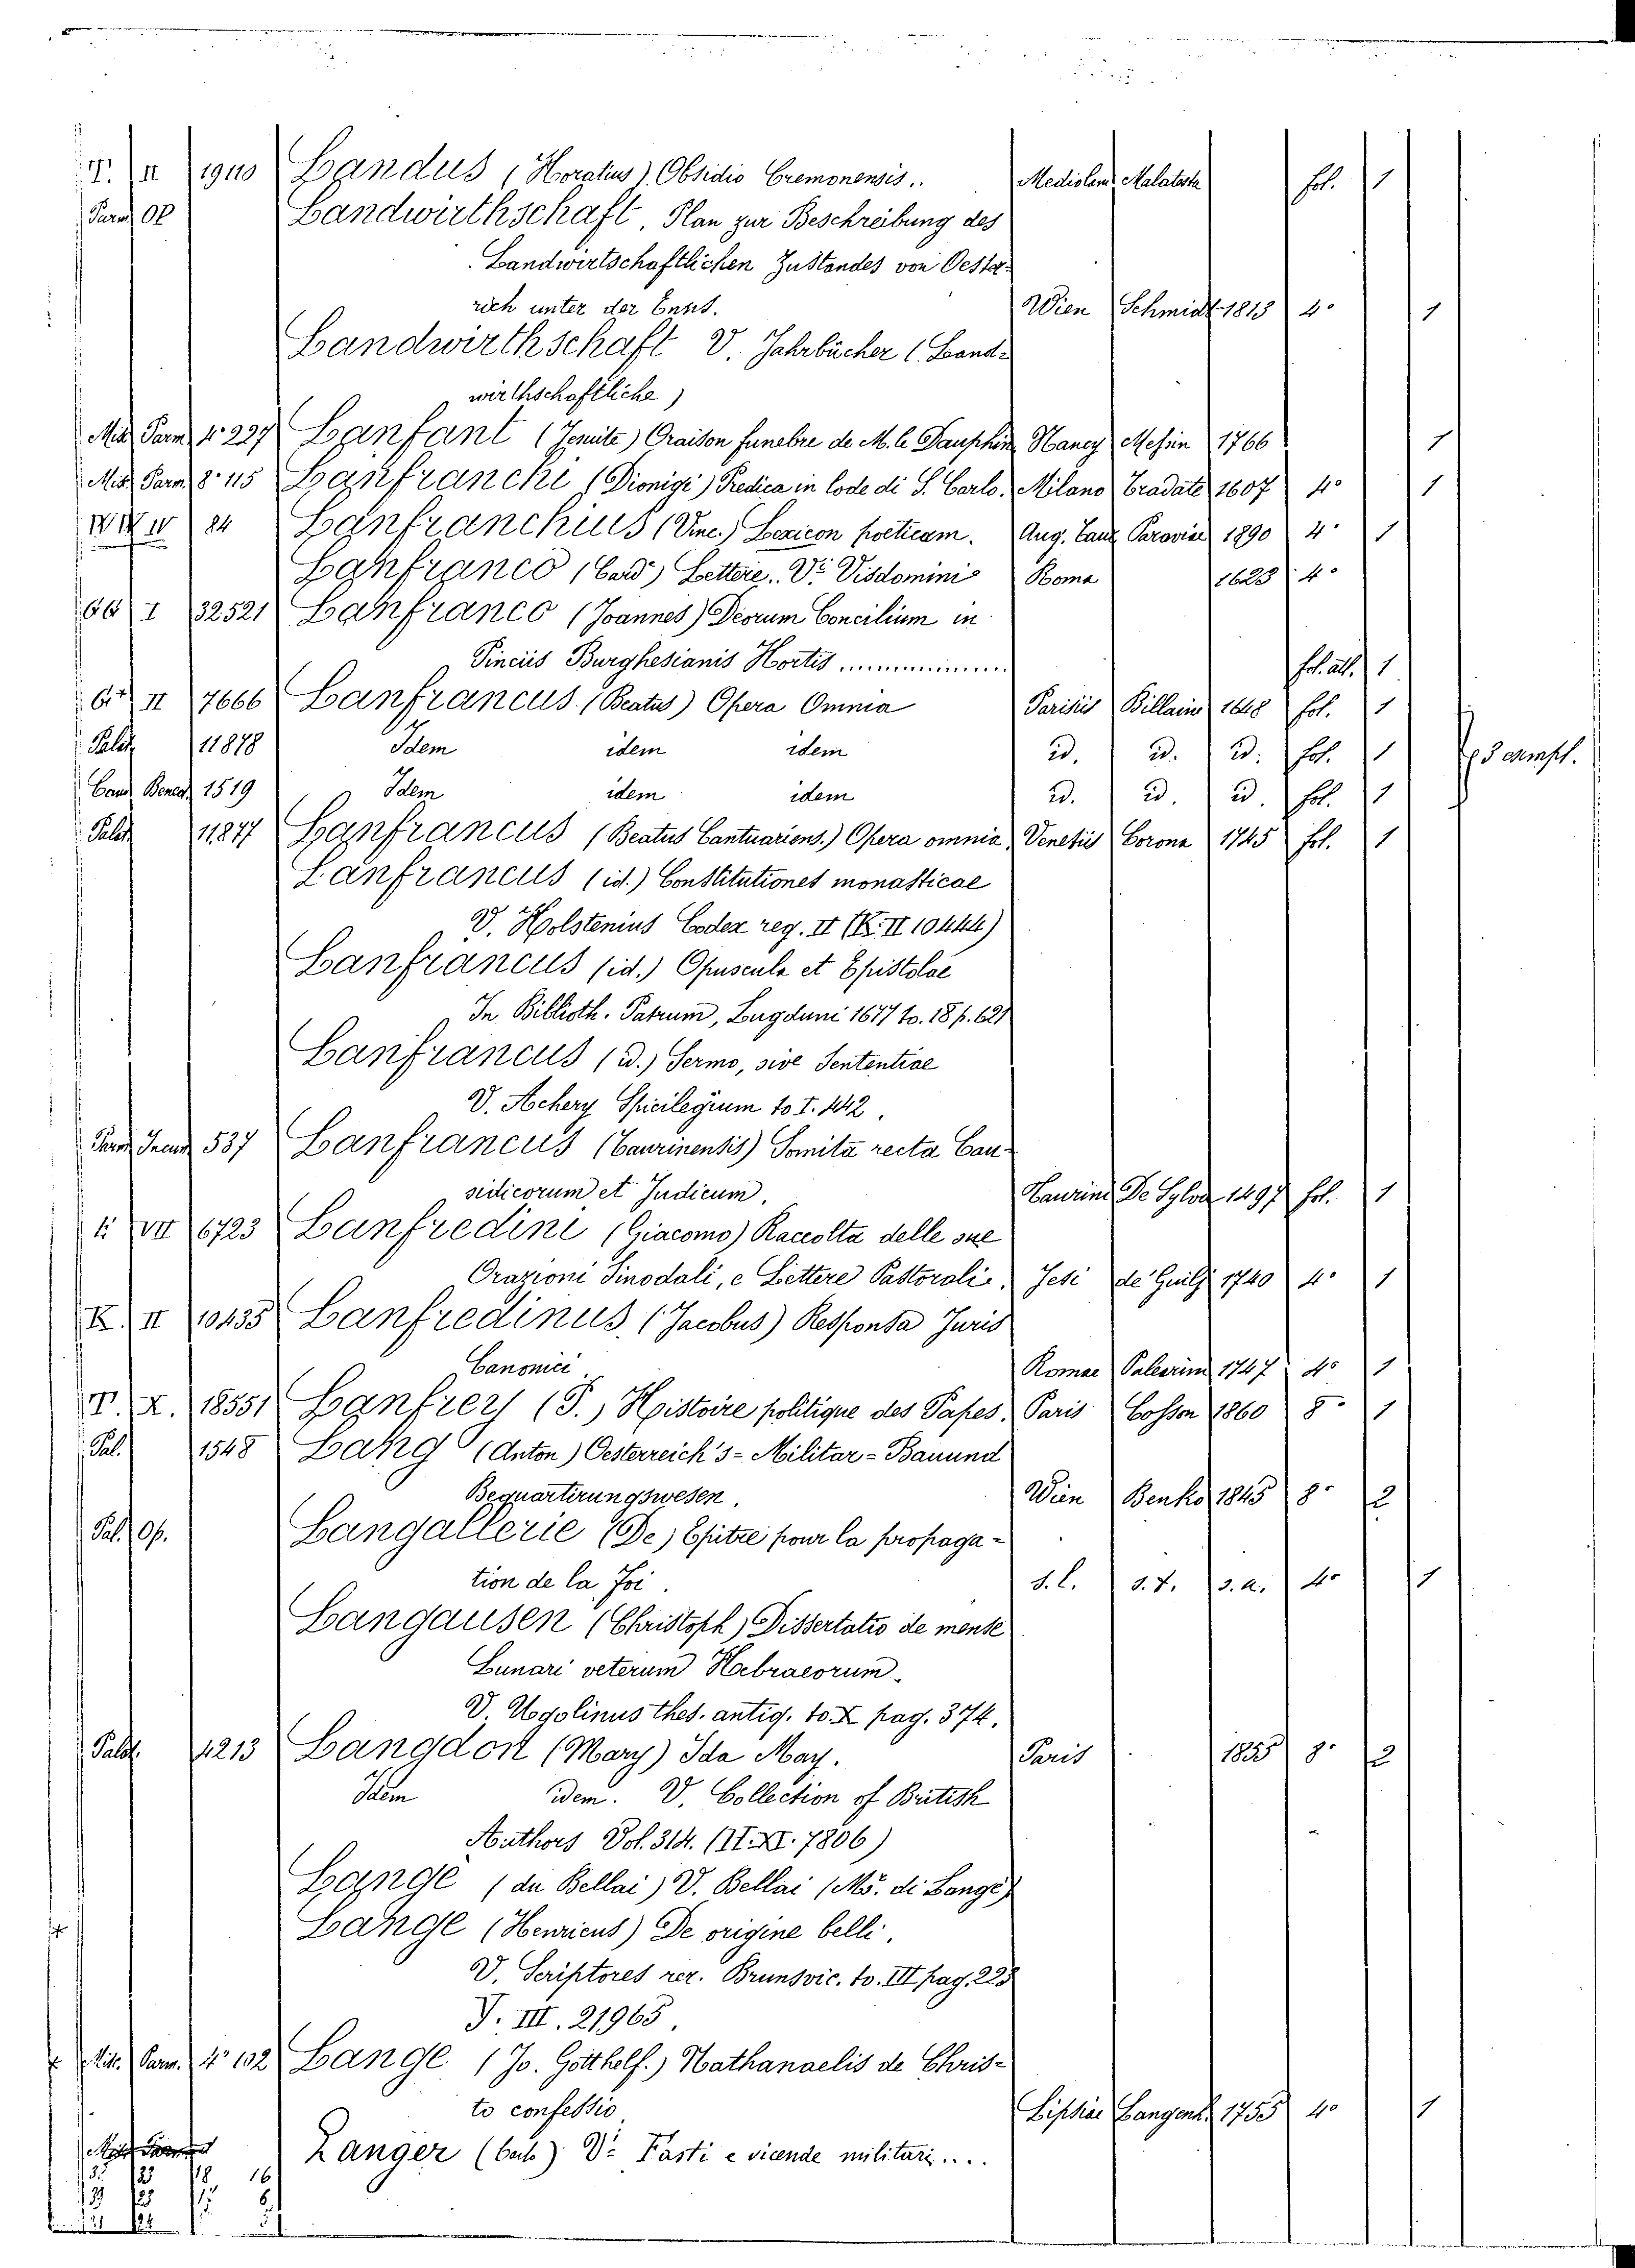 T. II 19110 Landus (Horatius) Obsidio Cremonensis. Mediolani Malatesta fol. 1
Parm. Op. Landwirthschaft, Plan zur Beschreibung des
Landwirtschaftlichen Zustandes von Oester-
reich unter der Enns. Wien Schmidt 1813 4° 1
Landwirthschaft V. Jahrbücher (Land-
wirthschaftliche)
Mis. Parm. 4° 227 Lanfant (Jesuite) Oraison funebre de M. le Dauphin Nancy Messin 1766 1
Mis. Parm. 8° 115 Lanfranchi (Dionigi) Predica in lode di S. Carlo. Milano Tradate 1607 4° 1
IV 84 Lanfranchius (Vinc.) Lexicon poeticam. Aug. Taur. Paravia 1890 4° 1
Lanfranco (Card.) Lettere. V. Visdomini Roma 1623 4°
I 32521 Lanfranco (Joannes) Deorum Concilium in
Pinciis Burghesianis Hortis ............ fol. atl. 1
G* II 7666 Lanfrancus (Beatus) Opera Omnia Parisiis Billaine 1648 fol. 1
Palat. 11878 Idem idem idem id. id. id. fol. 1 3 exempl.
Cand. Bened. 1519 Idem idem idem id. id. id. fol. 1
Palat. 11,877 Lanfrancus (Beatus Cantuariens.) Opera omnia, Venetiis Corona 1745 fol. 1
Lanfrancus (id.) Constitutiones monasticae
V. Holstenius Codex reg. II (K. II 10444)
Lanfrancus (id.) Opuscula et Epistolae
In Biblioth. Patrum, Lugduni 1677 to. 18 p. 621
Lanfrancus (id.) Sermo, sive Sententiae
V. Achery Spicilegium to I. 442.
Parm. Incun. 537 Lanfrancus (Taurinensis) Somita recta Cau-
sidicorum et Judicum. Taurini De Sylva 1497 fol. 1
VII 6723 Lanfredini (Giacomo) Raccolta delle sue
Orazioni Sinodali, e Lettere Pastorali. Jesi de' Giulj 1740 4° 1
K. II 10435 Lanfredinus (Jacobus) Responsa Juris
Canonici Romae Palearini 1747 4° 1
T. X. 18551 Lanfrey (P.) Histoire politique des Papes. Paris Cosson 1860 8° 1
Pal. 1548 Lang (Anton) Oesterreich's-Militar-Bauund
Bequartirungswesen. Wien Benko 1845 8° 2
Pal. Op. Langallerie (De) Epitre pour la propaga-
tion de la Foi. s. l. s. t. s. a. 4° 1
Langausen (Christoph) Dissertatio de mense
Lunari veterum Hebraeorum.
V. Ugolinus thes. antiq. to. X pag. 374.
Palat. 4213 Langdon (Mary) Ida May. Paris 1855 8° 2
Idem idem. V. Collection of British
Authors Vol. 314. (II. XI. 7806)
Lange (du Bellai) V. Bellai (Mo. di Lange)
Lange (Henricus) De origine belli.
V. Scriptores rer. Brunsvic. to. III pag. 223
V. III. 21965.
Mis. Parm. 4° 102 Lange (Jo. Gotthelf.) Nathanaelis de Chris-
to confessio Lipsiae Langenh. 1755 4° 1
Langer V. Fasti e vicende militari....
16